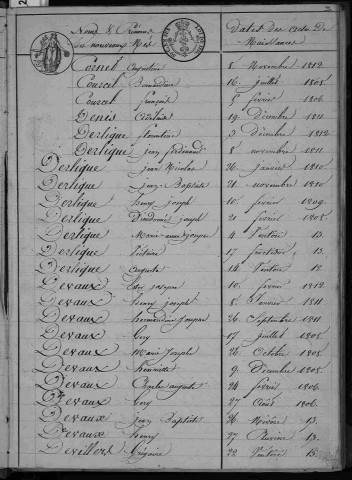 Noms & Prénoms
des nouveaux Nés
Dates des actes De
Naissances
Cornet Augustine 8 Novembre 1812
Courcel 16 juillet 1808
Courcel françois 5 fevrier 1806
Denis Adelaïde 19 Décembre 1811
Derligue florentine 3 Décembre 1812
Derligue jean ferdinand 8 novembre 1811
Derligue jean Nicolas 26 janvier 1810
Derligue jean Baptiste 21 novembre 1810
Derligue henry joseph 10 fevrier 1809
Derligue Dieudonné joseph 21 fevrier 1808
Derligue Marie anne josephe 4 Ventose 13
Derligue Victoire 17 fructidor 13
Derligue Auguste 14 Ventose 12
Devaux joseph 10 fevrier 1812
Devaux henry joseph 8 Janvier 1811
Devaux josephe 26 Septembre 1811
Devaux Gery 17 juillet 1808
Devaux Marie Josephe 26 Octobre 1808
Devaux henriette 9 Décembre 1808
Devaux Charles auguste 24 fevrier 1806
Devaux Gery 27 Août 1806
Devaux jean Baptiste 26 Nivose 13
Devaux henry 27 13
Devillers Grégoire 22 Ventose 13